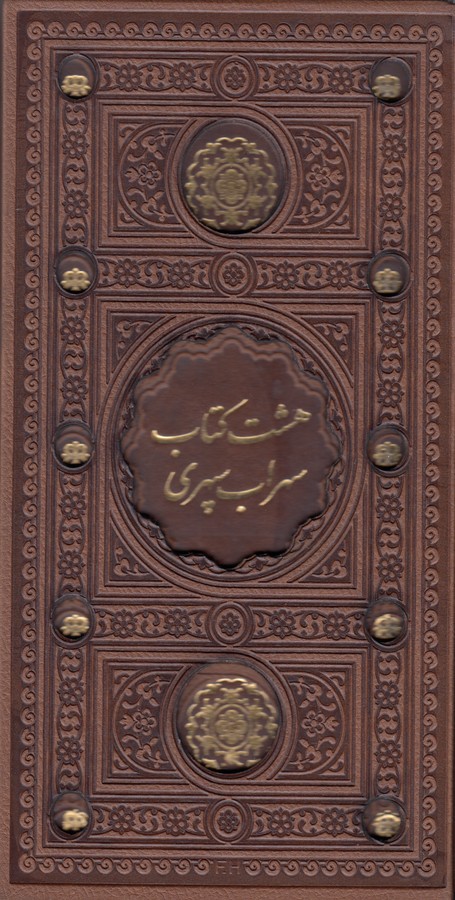 هشت کتاب
سهراب سپهری
F.H